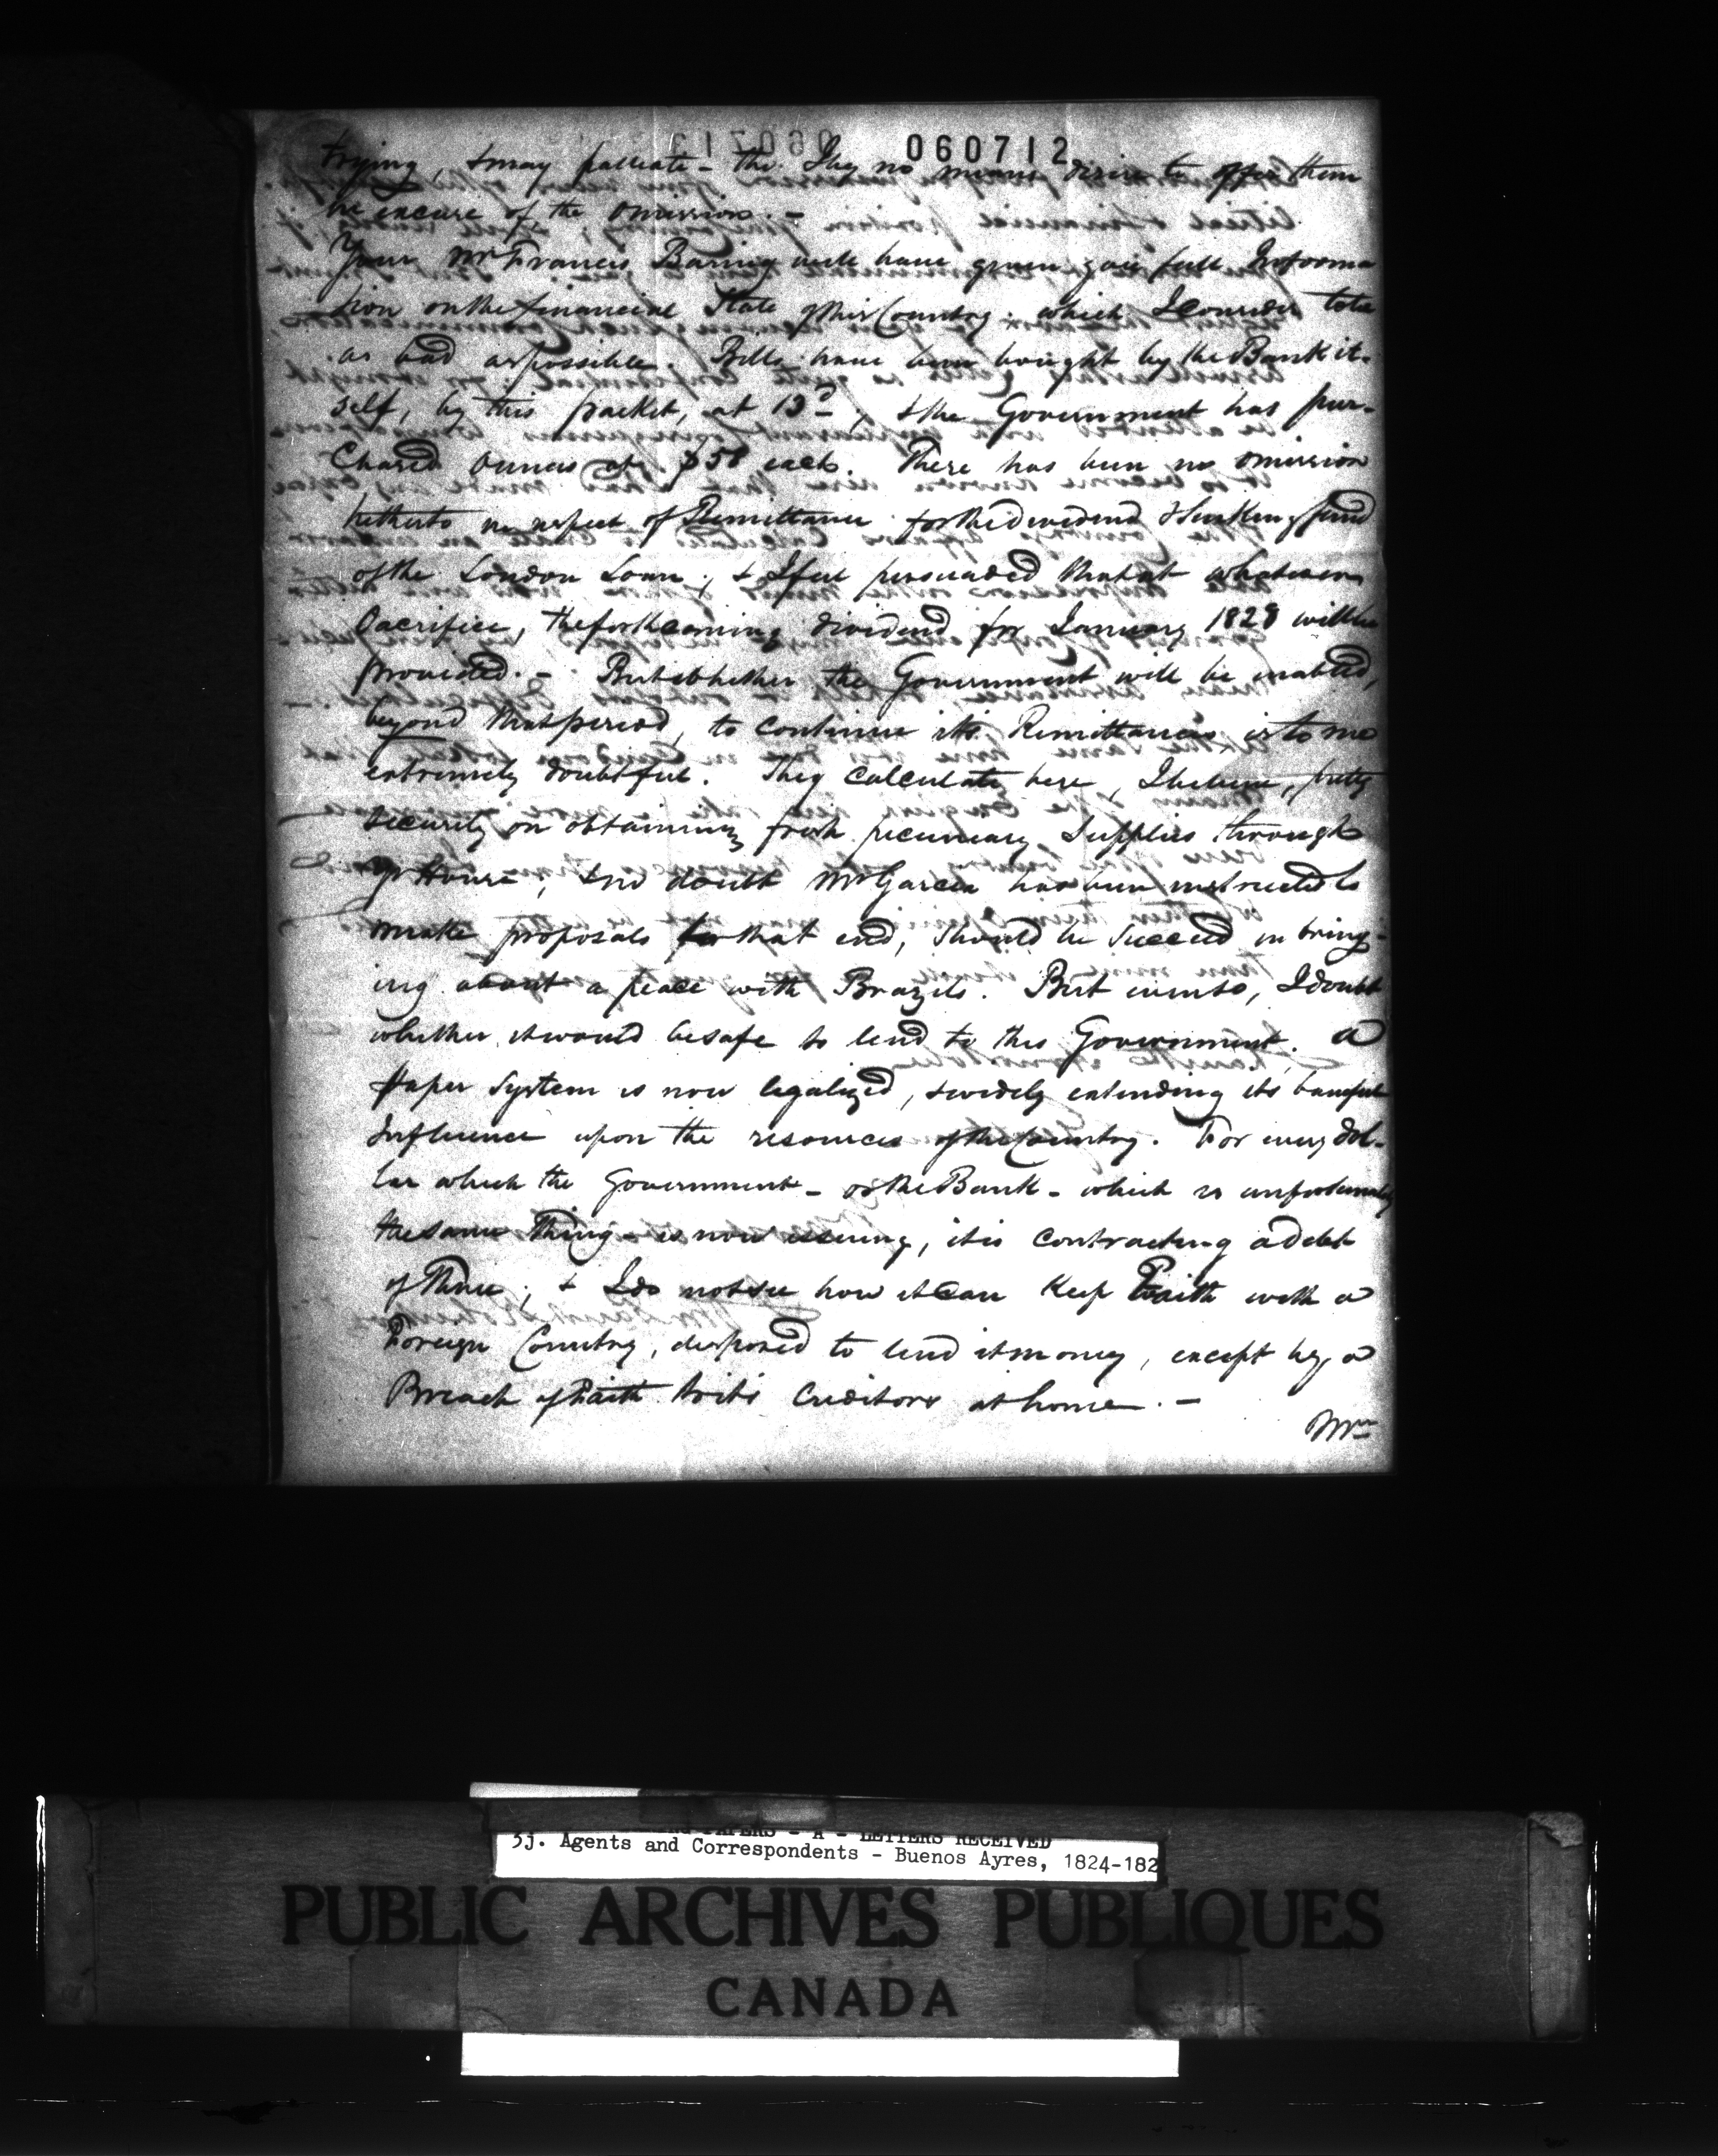 060712
trying, & may palliate - tho' I by no means desire to offer them
in excuse of the omission. -
Your Mr Francis Baring will have given you full Informa
tion on the financial State of this Country: which I consider to be
as bad as possible. Bills have been bought by the Bank it-
self, by this packet, at 13d, & the Government has pur-
chased Ounces at $58 each. There has been no omission
hitherto in respect of Remittance for the dividend & Sinking fund
of the London Loan; & I feel persuaded that at whatever
Sacrifice, the forthcoming dividend for January 1828 will be
provided. - But whether the Government will be enabled,
beyond that period, to continue its Remittances is to me
extremely doubtful. They calculate here, I believe, pretty
securely on obtaining fresh pecuniary Supplies through
yr House; & no doubt Mr Garcia has been instructed to
make proposals to that end, should he succeed in bring-
ing about a peace with Brazils. But even so, I doubt
whether it would be safe to lend to this Government. A
paper System is now legalized, & widely extending its baneful
Influence upon the resources of the Country. For every dol-
lar which the Government - or the Bank - which is unfortunately
the same thing - is now issuing, it is contracting a debt
of three; & I do not see how it can keep Faith with a
Foreign Country, disposed to lend it money, except by a
Breach of Faith to its Creditors at home. -
PAPERS - A - LETTERS RECEIVED
5j. Agents and Correspondents - Buenos Ayres, 1824-182
PUBLIC ARCHIVES PUBLIQUES
CANADA